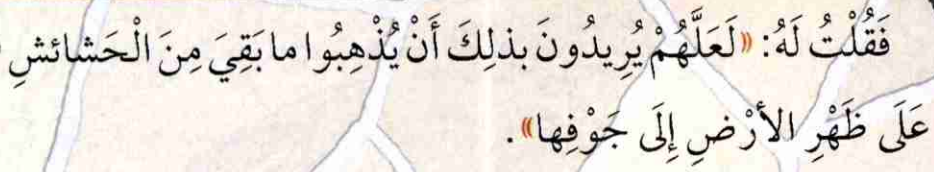 فَقُلْتُ لَهُ: «لَعَلَّهُمْ يُرِيدُونَ بذلِكَ أَنْ يُذْهِبُوا ما بَقِيَ مِنَ الْحَشائشِ
عَلَى ظَهْرِ الأرْضِ إِلَى جَوْفِها».